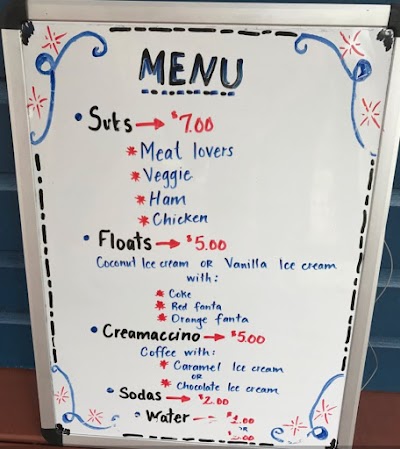 MENU
• Suts → $7.00
* Meat lovers
* Veggie
* Ham
* Chicken
• Floats → $5.00
Coconut Ice cream OR Vanilla Ice cream
with:
* Coke
* Red fanta
* Orange fanta
• Creamaccino → $5.00
Coffee with:
* Caramel Ice cream
OR
* Chocolate Ice cream
• Sodas → $2.00
• Water → $1.00
OR
$2.00